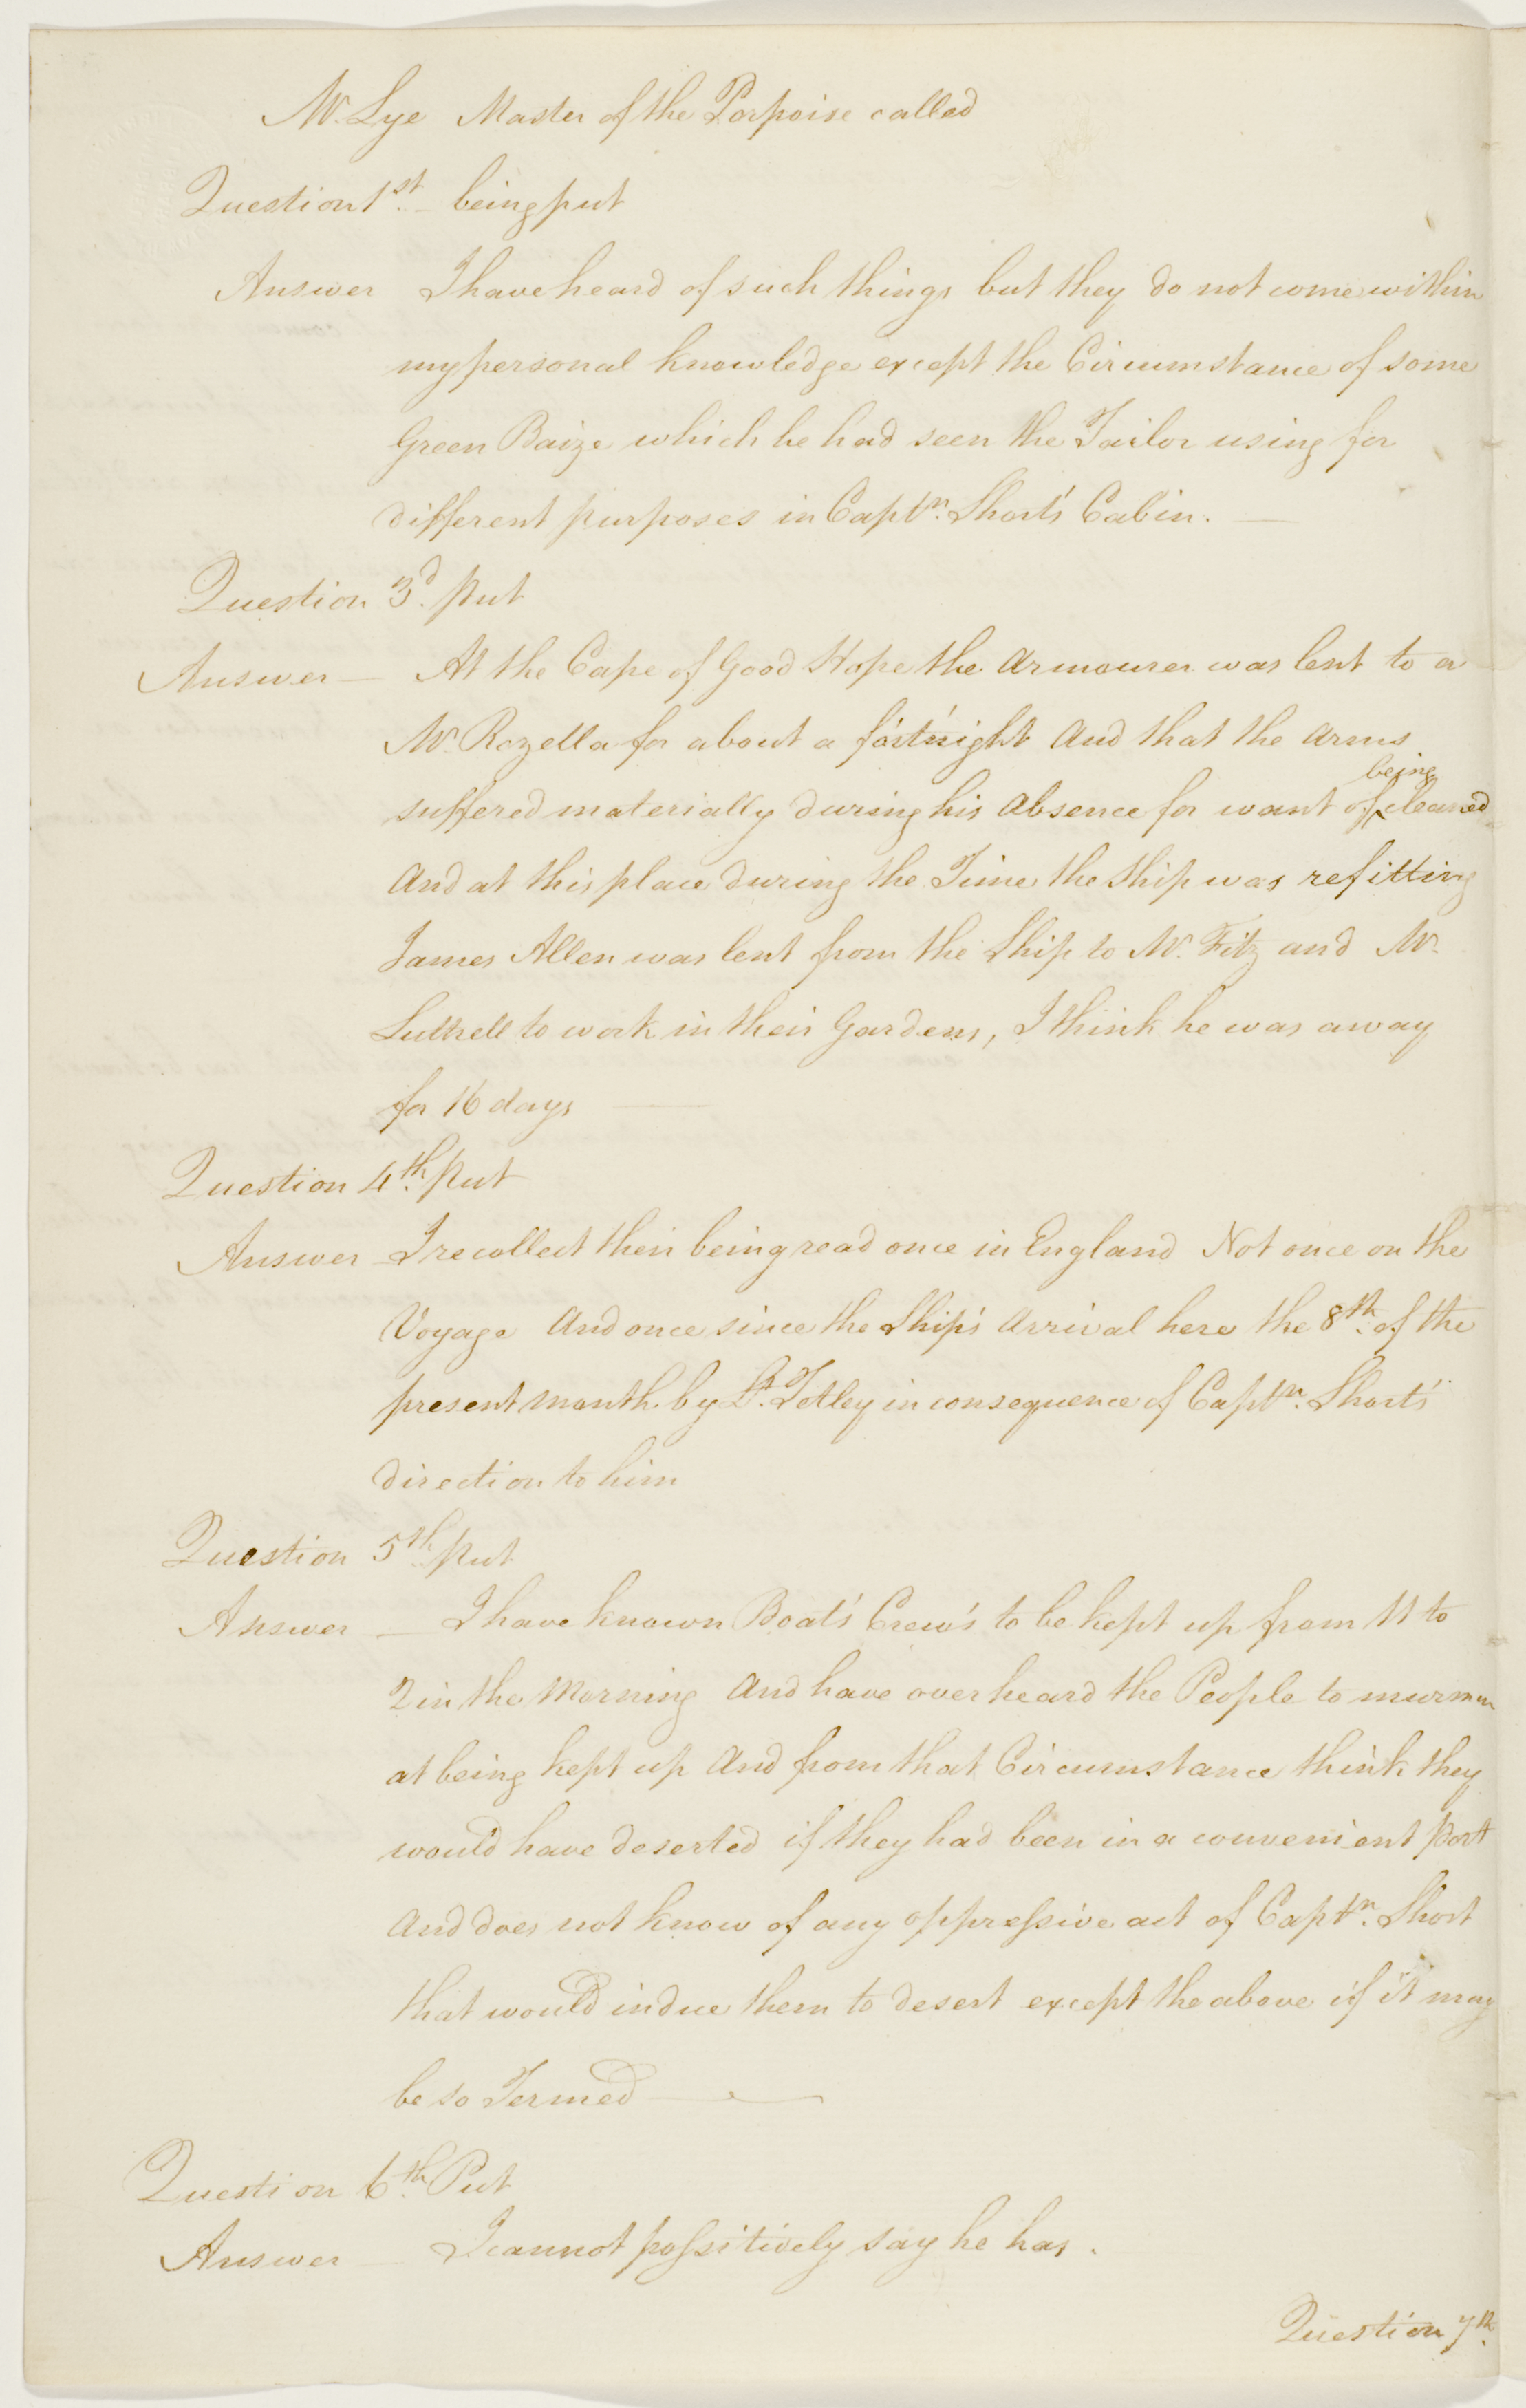 Mr. Lye Master of the Porpoise called
Question 1st. being put
Answer I have heard of such things but they do not come within
my personal knowledge except the Circumstance of some
Green Baize which he had seen the Tailor using for
different purposes in Captn. Short's Cabin. —
Question 3d. put
Answer — At the Cape of Good Hope the Armourer was lent to a
Mr. Rozella for about a fortnight And that the Arms
suffered materially during his Absence for want of being cleaned
And at this place during the Time the Ship was refitting
James Allen was lent from the Ship to Mr. Fitz and Mr.
Luttrell to work in their Gardens, I think he was away
for 16 days —
Question 4th. put
Answer I recollect their being read once in England Not once on the
Voyage And once since the Ship's Arrival here the 8th. of the
present month by Lt. Tetley in consequence of Captn. Short's
direction to him
Question 5th put
Answer — I have known Boat's Crew's to be kept up from 11 to
2 in the Morning And have overheard the People to murmur
at being kept up And from that Circumstance think they
would have deserted if they had been in a convenient port
And does not know of any oppressive act of Captn. Short
that would induce them to desert except the above if it may
be so Termed —
Question 6th. Put
Answer — I cannot possitively say he has.
Question 7th.